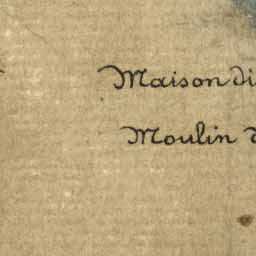 Maison di
Moulin